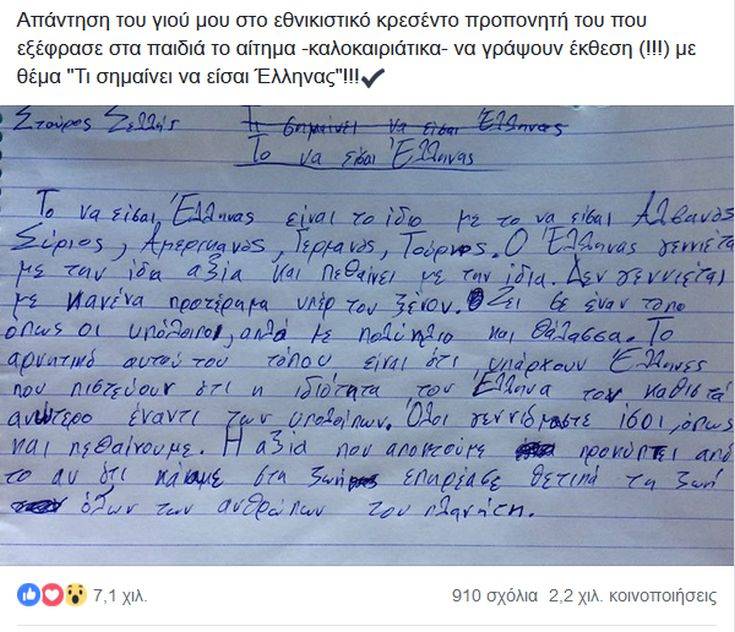 Απάντηση του γιού μου στο εθνικιστικό κρεσέντο προπονητή του που
εξέφρασε στα παιδιά το αίτημα -καλοκαιριάτικα- να γράψουν έκθεση (!!!) με
θέμα "Τι σημαίνει να είσαι Έλληνας"!!!✔
Σταύρος Σελλής Τι σημαίνει να είσαι Έλληνας
Το να είσαι Έλληνας
Το να είσαι Έλληνας είναι το ίδιο με το να είσαι Αλβανός
Σύριος, Αμερικανός, Γερμανός, Τούρκος. Ο Έλληνας γεννιέται
με την ίδια αξία και πεθαίνει με την ίδια. Δεν γεννιέται
με κανένα προτέρημα υπέρ του ξένου. Ζει σε έναν τόπο
όπως οι υπόλοιποι, απλά με πολύ ήλιο και θάλασσα. Το
αρνητικό αυτού του τόπου είναι ότι υπάρχουν Έλληνες
που πιστεύουν ότι η ιδιότητα του Έλληνα τον καθιστά
ανώτερο έναντι των υπολοίπων. Όλοι γεννιόμαστε ίσοι, όπως
και πεθαίνουμε. Η αξία που αποκτούμε προκύπτει από
το αν ότι κάναμε στη ζωή μας επηρέασε θετικά τη ζωή
όλων των ανθρώπων του πλανήτη.
7,1 χιλ. 910 σχόλια 2,2 χιλ. κοινοποιήσεις